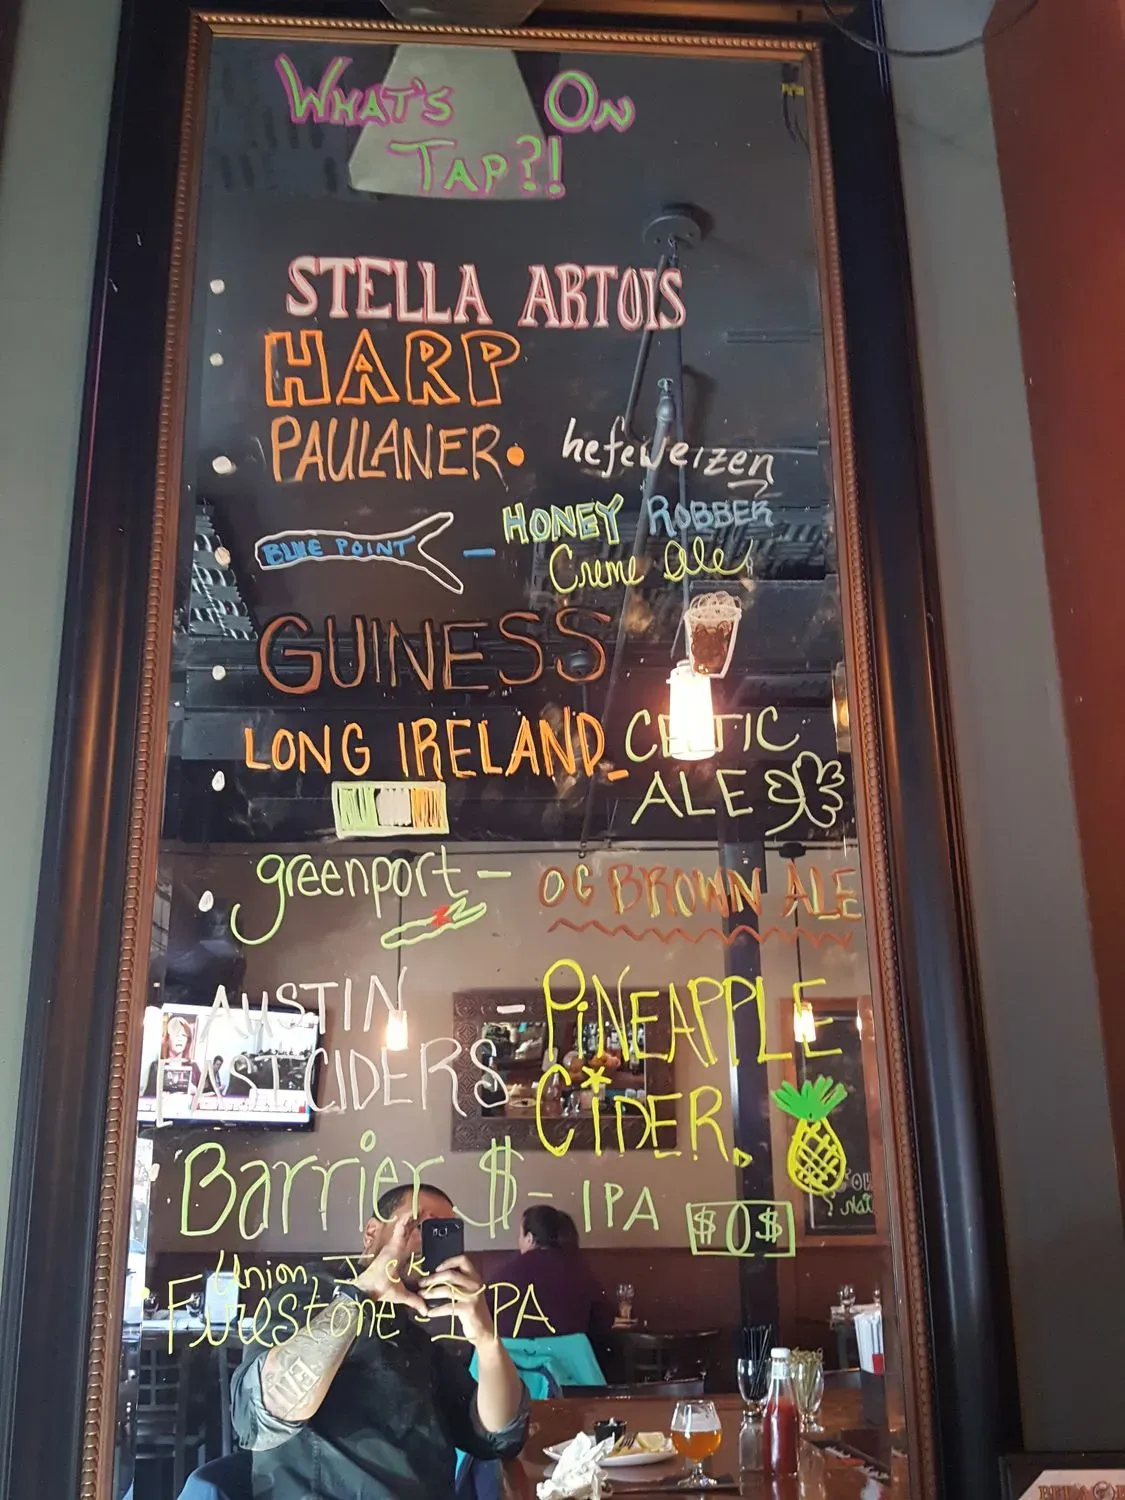 WHAT'S ON
TAP?!
STELLA ARTOIS
HARP
PAULANER. hefeweizen
BLUE POINT - HONEY ROBBER
Creme Ale
GUINESS
LONG IRELAND - CELTIC
ALE
greenport - OG BROWN ALE
AUSTIN - PiNEAPPLE
EASTCIDERS CiDER.
Barrier $ - IPA $0$
Union Jack
Firestone - IPA